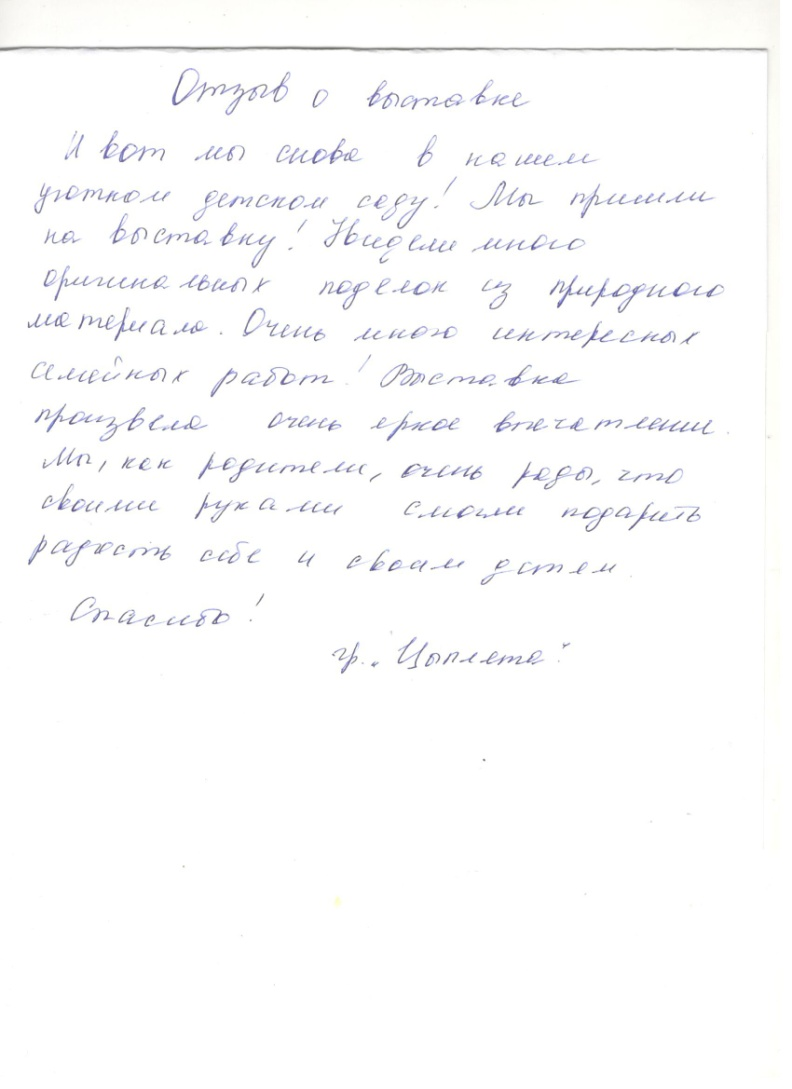 Отзыв о выставке
И вот мы снова в нашем
уютном детском саду! Мы пришли
на выставку! Увидели много
оригинальных поделок из природного
материала. Очень много интересных
семейных работ! Выставка
произвела очень яркое впечатление.
Мы, как родители, очень рады, что
своими руками смогли подарить
радость себе и своим детям.
Спасибо!
гр. "Цыплята".